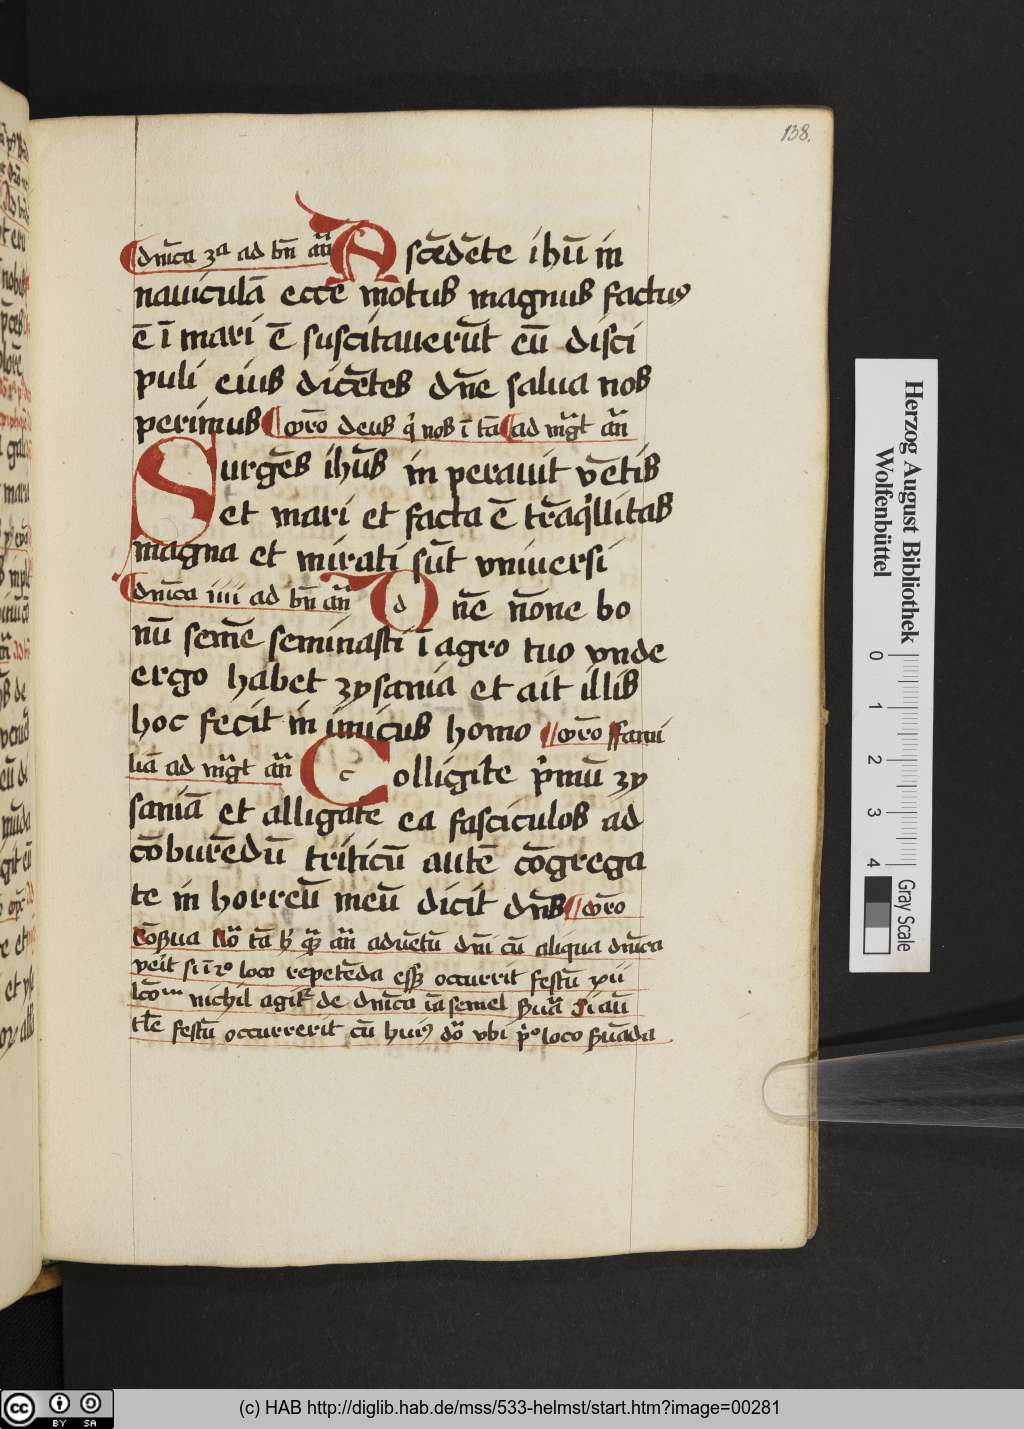 138.
dnı̄ca 3a ad bn̄ an̄ Ascēdēte ihū in
nauiculā ecce motus magnus factus
ē ī mari ē suscitauerūt eū disci
puli eius dicētes dn̄e salua nos
perimus Or̄o deus q' nos ī tā ad mg̃t an̄
Surgēs ihūs in perauit vētis
et mari et facta ē trāq'llitas
magna et mirati sūt vniuersi
dnı̄ca iiii ad bn̄ an̄ Dnē n̄one bo
nū semē seminasti ī agro tuo vnde
ergo habet zysania et ait illis
hoc fecit in imicus homo or̄o fami
liā ad mg̃t an̄ Colligite p'mū zy
saniā et alligate ea fasciculos ad
cōburēdū triticū autē cōgrega
te in horreū meū dicit dn̄s or̄o
tā an̄ aduētū dnı̄ cū aliqua dnı̄ca
veīt si ī loco repetēda occurrit festū
nichil de dnı̄ca semel Si aū
festū occurrerit cū vbi loco
Herzog August Bibliothek
Wolfenbüttel
0 1 2 3 4
Gray Scale
cc BY SA
(c) HAB http://diglib.hab.de/mss/533-helmst/start.htm?image=00281